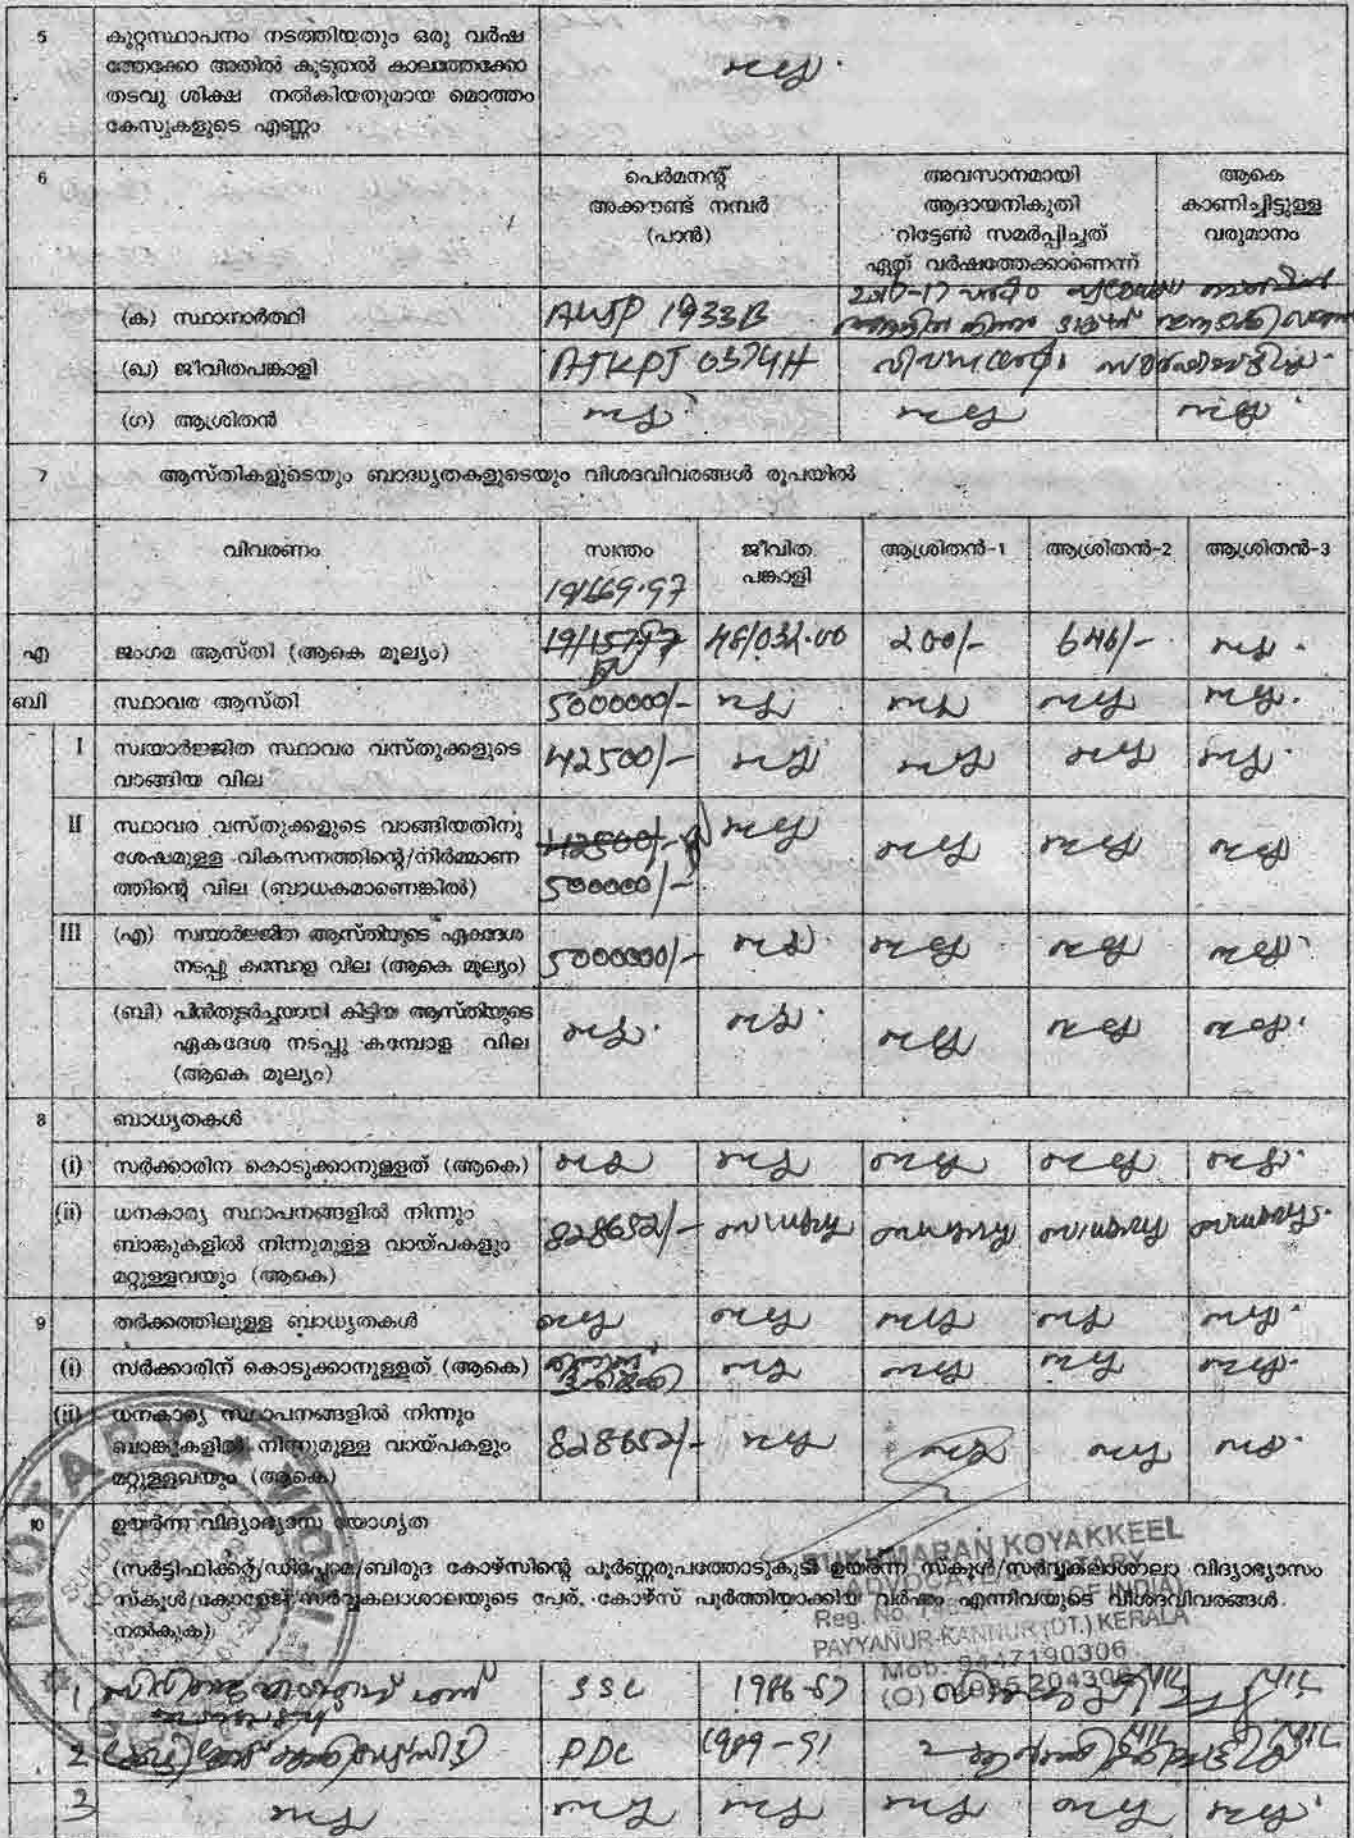 5 കുറ്റസ്ഥാപനം നടത്തിയതും ഒരു വർഷ
ത്തേക്കോ അതിൽ കൂടുതൽ കാലത്തേക്കോ
തടവു ശിക്ഷ നൽകിയതുമായ മൊത്തം
കേസുകളുടെ എണ്ണം
ഇല്ല.
6 പെർമനന്റ് അക്കൗണ്ട് നമ്പർ (പാൻ)
അവസാനമായി ആദായനികുതി റിട്ടേൺ സമർപ്പിച്ചത് ഏത് വർഷത്തേക്കാണെന്ന്
ആകെ കാണിച്ചിട്ടുള്ള വരുമാനം
(ക) സ്ഥാനാർത്ഥി 1933B
(ഖ) ജീവിതപങ്കാളി AJKPJ 0374H
(ഗ) ആശ്രിതൻ ഇല്ല ഇല്ല ഇല്ല
7 ആസ്തികളുടെയും ബാദ്ധ്യതകളുടെയും വിശദവിവരങ്ങൾ രൂപയിൽ
വിവരണം സ്വന്തം ജീവിത പങ്കാളി ആശ്രിതൻ-1 ആശ്രിതൻ-2 ആശ്രിതൻ-3
എ ജംഗമ ആസ്തി (ആകെ മൂല്യം) 48/032.00 200/- 646/- ഇല്ല.
ബി സ്ഥാവര ആസ്തി 5000000/- ഇല്ല. ഇല്ല ഇല്ല ഇല്ല.
I സ്വയാർജ്ജിത സ്ഥാവര വസ്തുക്കളുടെ
വാങ്ങിയ വില
42500/- ഇല്ല ഇല്ല ഇല്ല ഇല്ല.
II സ്ഥാവര വസ്തുക്കളുടെ വാങ്ങിയതിനു
ശേഷമുള്ള വികസനത്തിന്റെ/നിർമ്മാണ
ത്തിന്റെ വില (ബാധകമാണെങ്കിൽ)
42500/- 500000/- ഇല്ല ഇല്ല ഇല്ല ഇല്ല
III (എ) സ്വയാർജ്ജിത ആസ്തിയുടെ ഏകദേശ
നടപ്പു കമ്പോള വില (ആകെ മൂല്യം)
5000000/- ഇല്ല. ഇല്ല ഇല്ല ഇല്ല
(ബി) പിൻതുടർച്ചയായി കിട്ടിയ ആസ്തിയുടെ
ഏകദേശ നടപ്പു കമ്പോള വില
(ആകെ മൂല്യം)
ഇല്ല. ഇല്ല. ഇല്ല ഇല്ല ഇല്ല.
8 ബാധ്യതകൾ
(i) സർക്കാരിന കൊടുക്കാനുള്ളത് (ആകെ) ഇല്ല ഇല്ല ഇല്ല ഇല്ല ഇല്ല.
(ii) ധനകാര്യ സ്ഥാപനങ്ങളിൽ നിന്നും
ബാങ്കുകളിൽ നിന്നുമുള്ള വായ്പകളും
മറ്റുള്ളവയും (ആകെ)
828652/-
9 തർക്കത്തിലുള്ള ബാധ്യതകൾ ഇല്ല ഇല്ല ഇല്ല ഇല്ല ഇല്ല.
(i) സർക്കാരിന് കൊടുക്കാനുള്ളത് (ആകെ) ഇല്ല ഇല്ല ഇല്ല ഇല്ല.
(ii) ധനകാര്യ സ്ഥാപനങ്ങളിൽ നിന്നും
ബാങ്കുകളിൽ നിന്നുമുള്ള വായ്പകളും
മറ്റുള്ളവയും (ആകെ)
828652/- ഇല്ല ഇല്ല ഇല്ല ഇല്ല.
10 ഉയർന്ന വിദ്യാഭ്യാസ യോഗ്യത
(സർട്ടിഫിക്കറ്റ്/ഡിപ്ലോമ/ബിരുദ കോഴ്സിന്റെ പൂർണ്ണരൂപത്തോടുകൂടി ഉയർന്ന സ്കൂൾ/സർവ്വകലാശാലാ വിദ്യാഭ്യാസം
സ്കൂൾ/കോളേജ്/സർവ്വകലാശാലയുടെ പേര്, കോഴ്സ് പൂർത്തിയാക്കിയ വർഷം എന്നിവയുടെ വിശദവിവരങ്ങൾ
നൽകുക)
NOTARY
KOYAKKEEL
ADVOCATE
OF INDIA)
Reg. No.
PAYYANUR-KANNUR (DT.) KERALA
Mob: 9447190306
1 SSC 1986-87 NIL NIL
2 PDC 1989-91 NIL NIL
3 ഇല്ല ഇല്ല ഇല്ല ഇല്ല ഇല്ല ഇല്ല